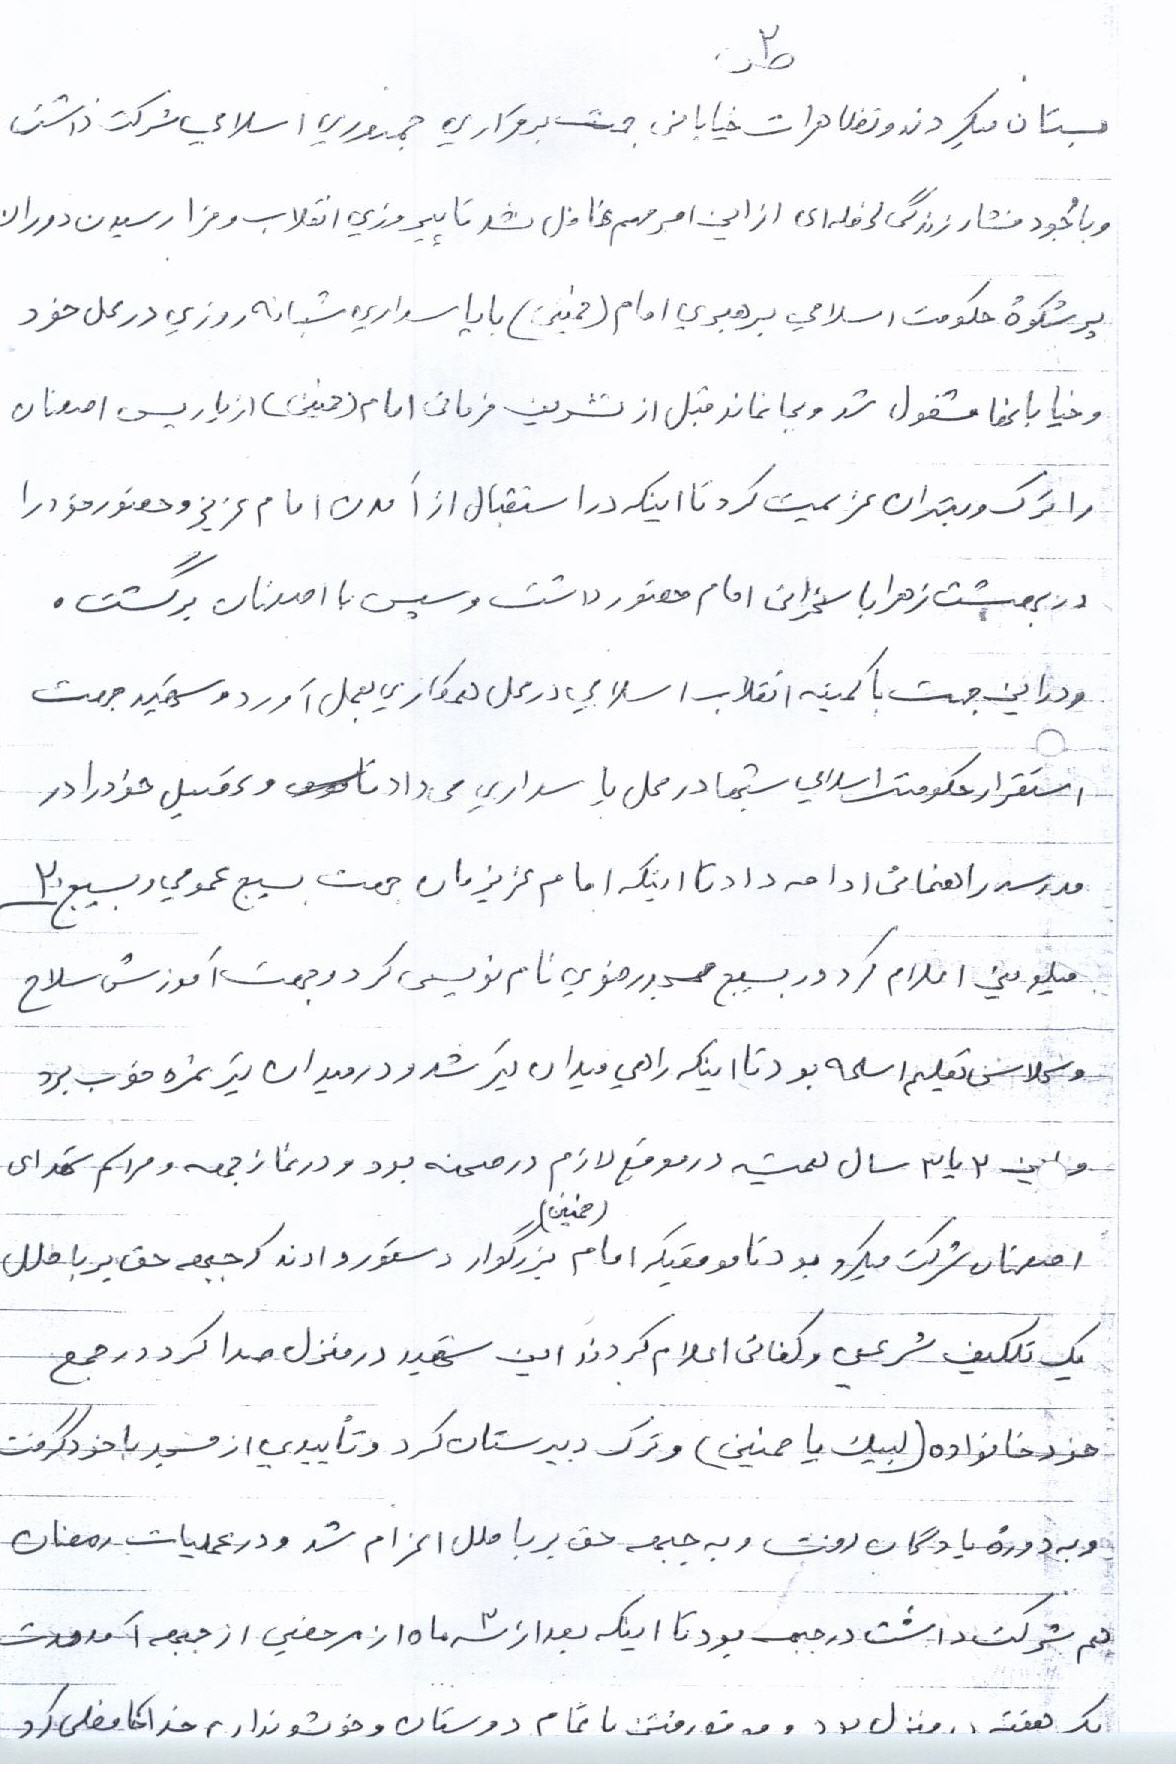 ۲
میکردند و تظاهرات خیابانی جهت برقراری جمهوری اسلامی شرکت داشت
و با وجود فشار زندگی لحظه‌ای از این امر مهم غافل نشد تا پیروزی انقلاب و فرا رسیدن دوران
پرشکوه حکومت اسلامی برهبری امام (خمینی) با پاسداری شبانه روزی در محل خود
و خیابانها مشغول شد و بجا نماند قبل از تشریف فرمائی امام (خمینی) از پاریس اصفهان
را ترک و بتهران عزیمت کرد تا اینکه در استقبال از آمدن امام عزیز و حضور خود را
در بهشت زهرا با سخنرانی امام حضور داشت و سپس با اصفهان برگشت .
و در این جهت با کمیته انقلاب اسلامی در محل همکاری بعمل آورد و شهید جهت
استقرار حکومت اسلامی شبها در محل پاسداری می داد تا و تحصیل خود را در
مدرسه راهنمائی ادامه داد تا اینکه امام عزیزمان جهت بسیج عمومی و بسیج ۲۰
میلیونی اعلام کرد در بسیج مسجد رضوی نام نویسی کرد و جهت آموزش سلاح
و کلاس تعلیم اسلحه بود تا اینکه راهی میدان تیر شد و در میدان تیر نمره خوب برد
و این ۲ یا ۳ سال همیشه در موقع لازم در صحنه بود و در نماز جمعه و مراسم شهدای
اصفهان شرکت میکرد بود تا موقعیکه امام (خمینی) بزرگوار دستور دادند که جبهه حق بر باطل
یک تکلیف شرعی و کفائی اعلام کردند این شهید در منزل صدا کرد در جمع
خود خانواده (لبیک یا خمینی) و ترک دبیرستان کرد و تأییدی از مسجد با خود گرفت
و به دوره پادگان رفت و به جبهه حق بر باطل اعزام شد و در عملیات رمضان
هم شرکت داشت در جبهه بود تا اینکه بعد از ۳ ماه از مرخصی از جبهه آمد مدت
یک هفته در منزل بود و موقع رفتن با تمام دوستان و خوشوندان خداحافظی کرد